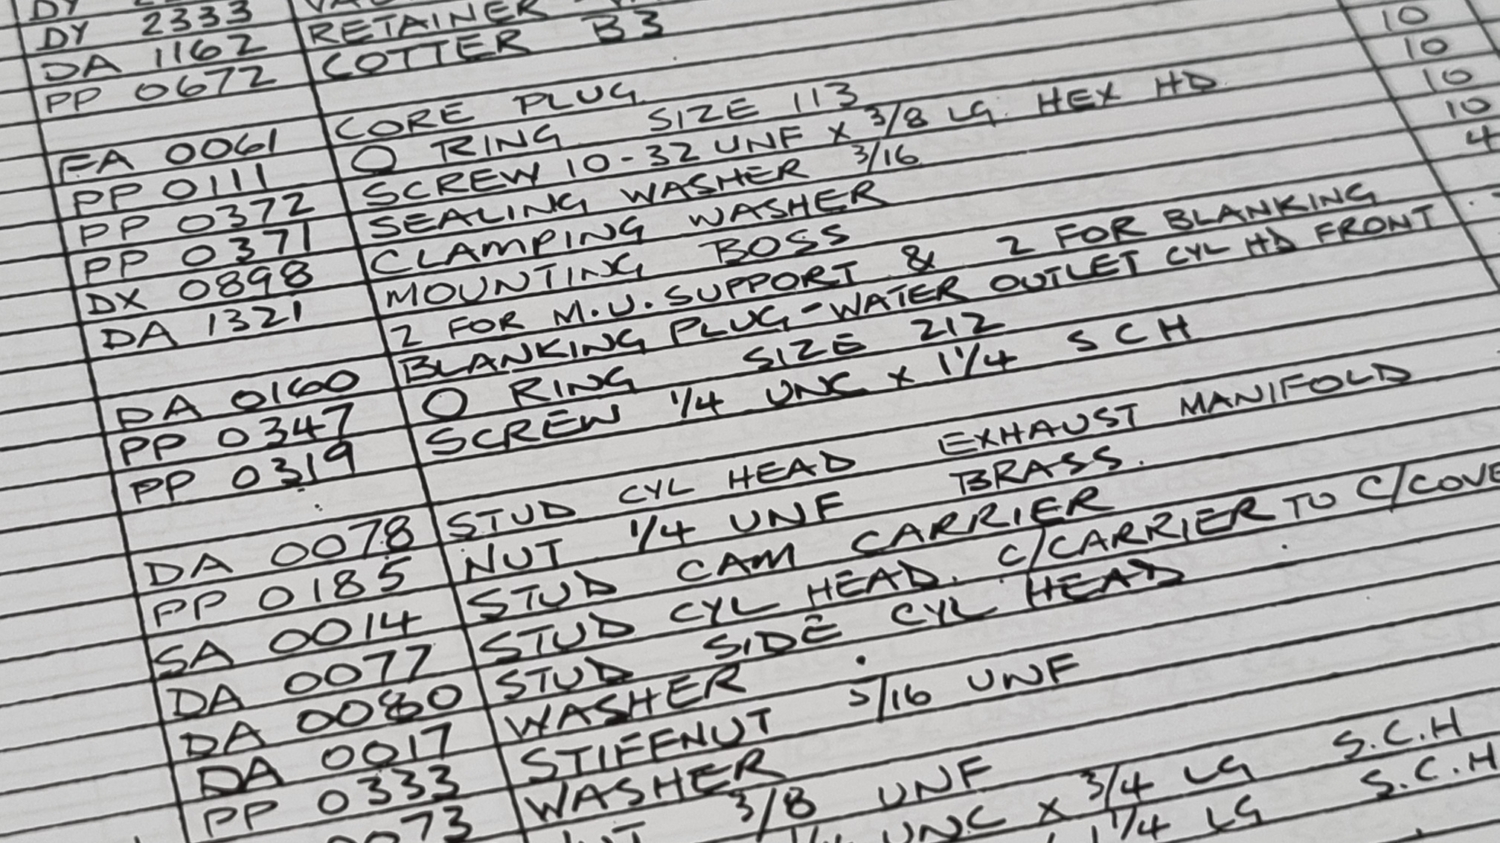 DY 2333
DA 1162 RETAINER
PP 0672 COTTER B3
FA 0061 CORE PLUG
PP 0111 O RING SIZE 113 10
PP 0372 SCREW 10-32 UNF x 3/8 LG. HEX HD 10
PP 0371 SEALING WASHER 3/16 10
DX 0898 CLAMPING WASHER 10
DA 1321 MOUNTING BOSS 4
2 FOR M.U. SUPPORT & 2 FOR BLANKING
DA 0160 BLANKING PLUG-WATER OUTLET CYL HD FRONT
PP 0347 O RING SIZE 212
PP 0319 SCREW 1/4 UNC x 1 1/4 SCH
DA 0078 STUD CYL HEAD EXHAUST MANIFOLD
PP 0185 NUT 1/4 UNF BRASS.
SA 0014 STUD CAM CARRIER
DA 0077 STUD CYL HEAD. C/CARRIER TO C/COVE
DA 0080 STUD SIDE CYL HEAD
DA 0017 WASHER
PP 0333 STIFFNUT 5/16 UNF
0073 WASHER
3/8 UNF
UNC x 3/4 LG S.C.H
1 1/4 LG S.C.H